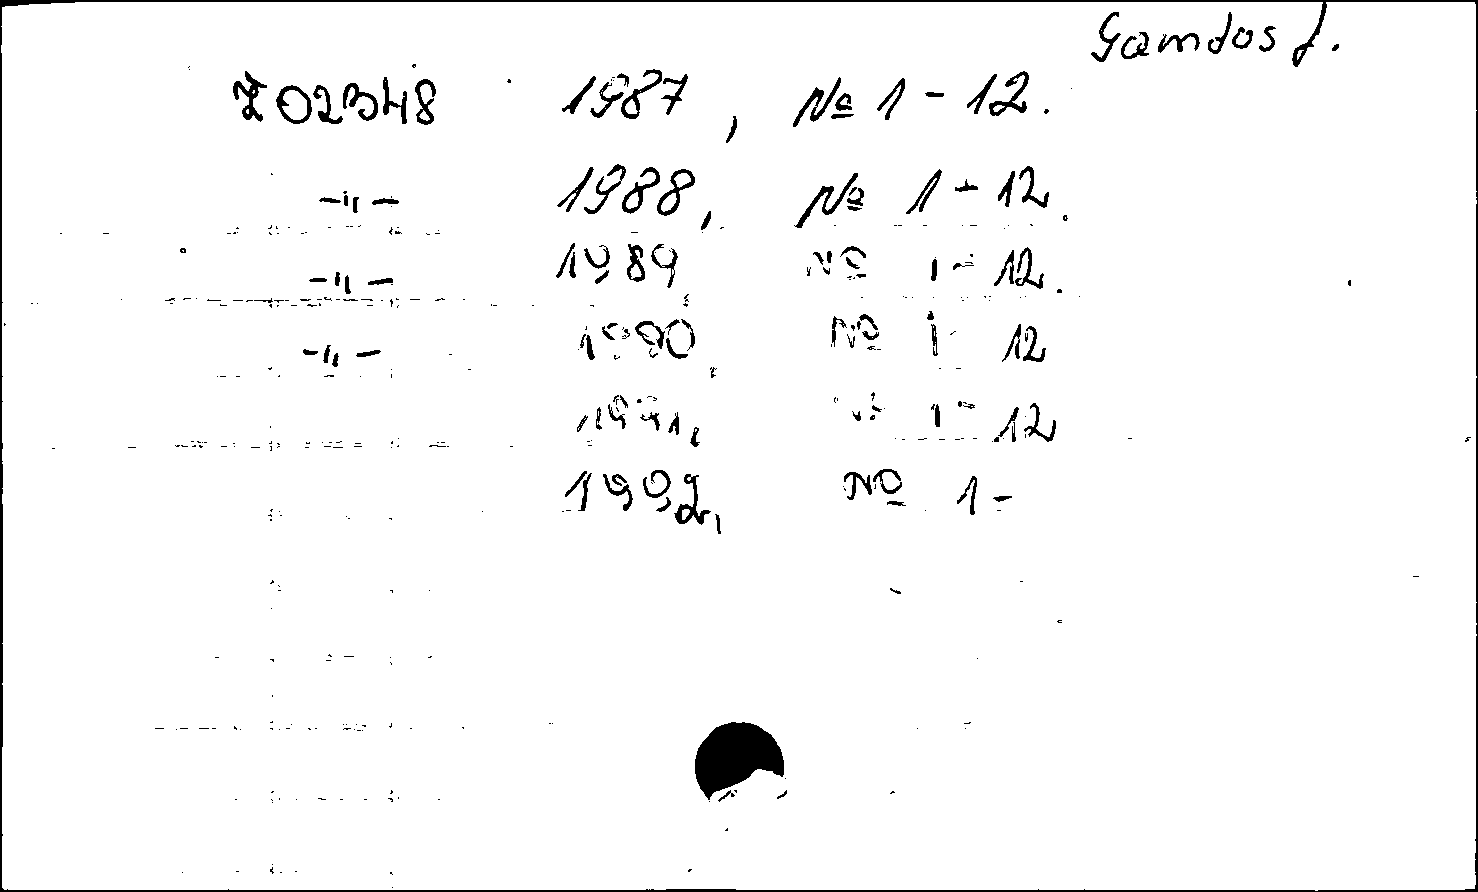 Gamtos f.
Ż 02348 1987, № 1 - 12.
-"- 1988, № 1 - 12.
-"- 1989, № 1 - 12.
-"- 1990, № 1 - 12
1991, № 1 - 12
1992, № 1 -